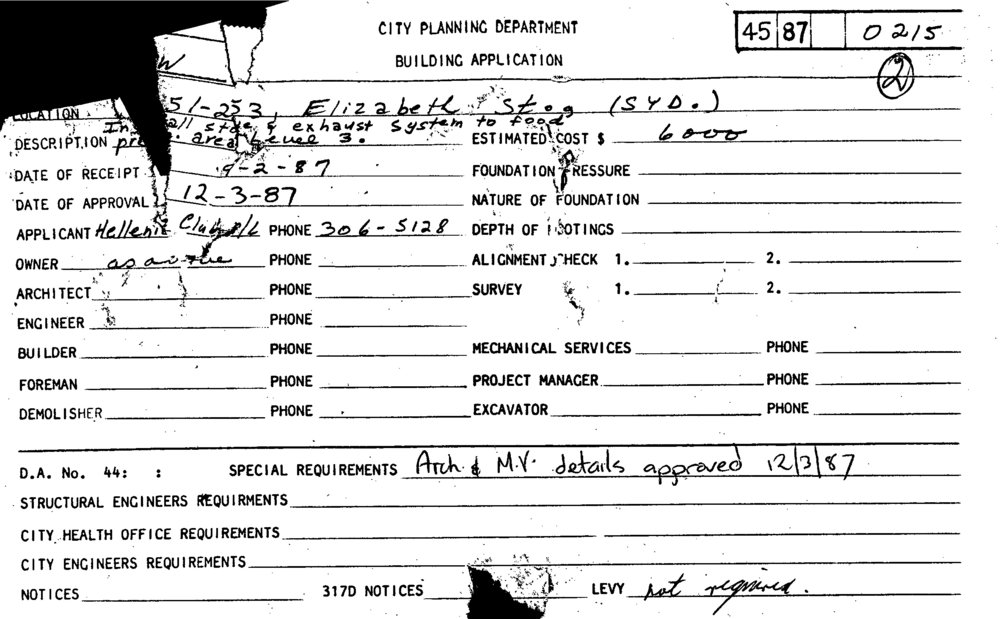 CITY PLANNING DEPARTMENT
45 87 0215
BUILDING APPLICATION
2
LOCATION 51-253, Elizabeth St. (SYD.)
DESCRIPTION exhaust system to food area Level 3. ESTIMATED COST $ 6000
DATE OF RECEIPT 9-2-87 FOUNDATION PRESSURE
DATE OF APPROVAL 12-3-87 NATURE OF FOUNDATION
APPLICANT Hellenic Club P/L PHONE 306-5128 DEPTH OF FOOTINGS
OWNER as above PHONE ALIGNMENT CHECK 1. 2.
ARCHITECT PHONE SURVEY 1. 2.
ENGINEER PHONE
BUILDER PHONE MECHANICAL SERVICES PHONE
FOREMAN PHONE PROJECT MANAGER PHONE
DEMOLISHER PHONE EXCAVATOR PHONE
D.A. No. 44: : SPECIAL REQUIREMENTS Arch. & M.V. details approved 12/3/87
STRUCTURAL ENGINEERS REQUIRMENTS
CITY HEALTH OFFICE REQUIREMENTS
CITY ENGINEERS REQUIREMENTS
NOTICES 317D NOTICES LEVY not required.